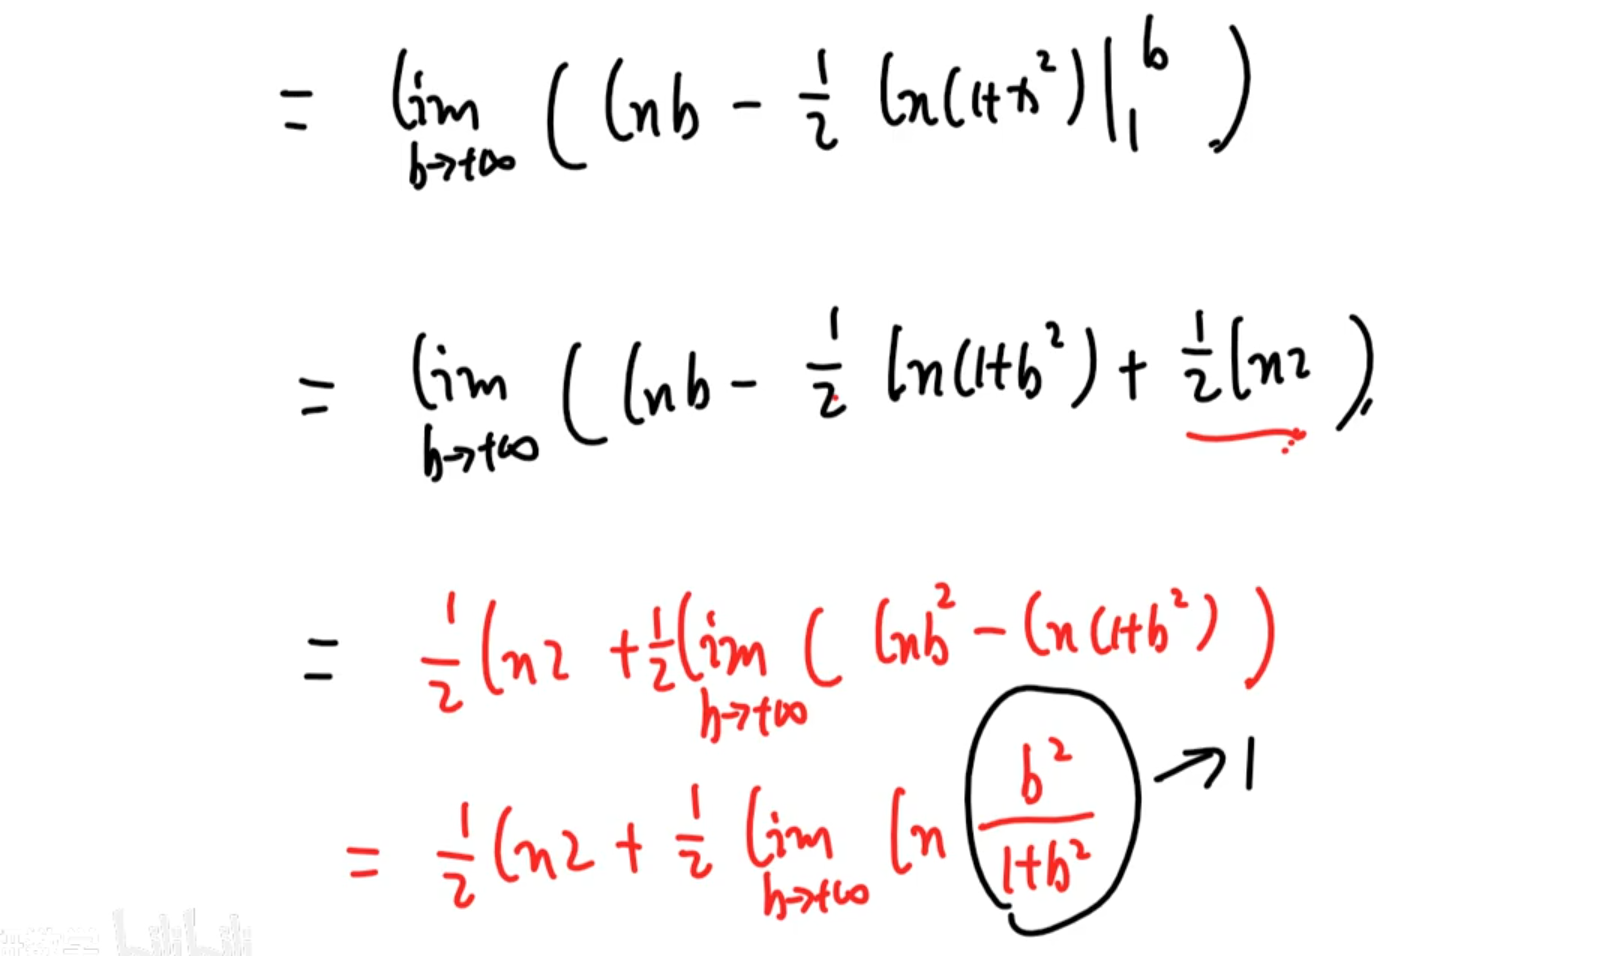 = lim b→+∞ ( ln b - 1/2 ln(1+x²)|₁ᵇ )
= lim b→+∞ ( ln b - 1/2 ln(1+b²) + 1/2 ln2 )
= 1/2 ln2 + 1/2 lim b→+∞ ( ln b² - ln(1+b²) )
= 1/2 ln2 + 1/2 lim b→+∞ ln b²/(1+b²) → 1